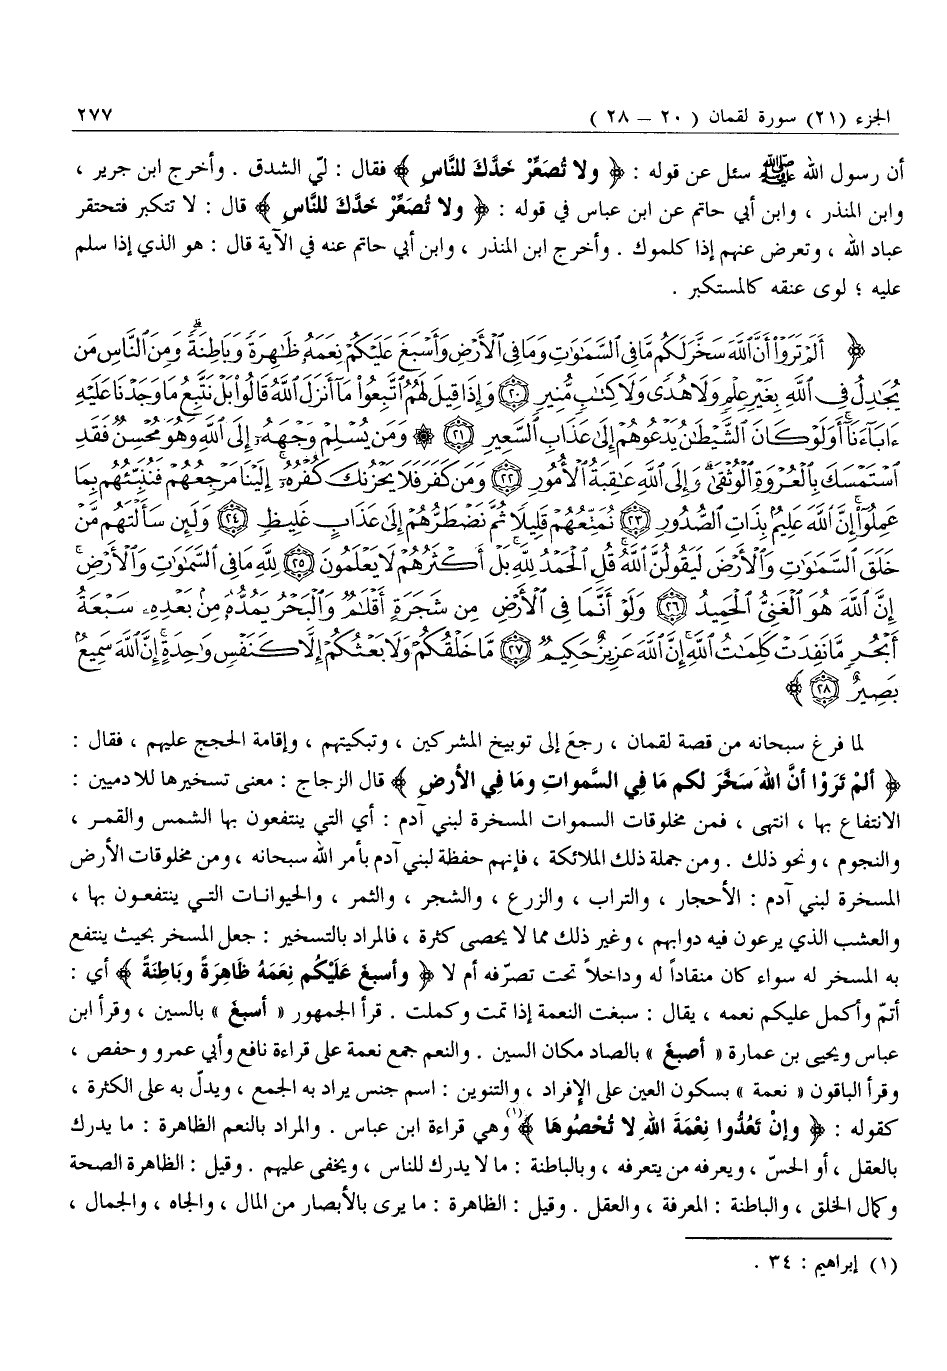 الجزء (٢١) سورة لقمان ( ٢٠ – ٢٨ ) ٢٧٧
أن رسول الله ﷺ سئل عن قوله : ﴿ ولا تُصَعِّرْ خَدَّكَ للنَّاسِ ﴾ فقال : ليّ الشدق . وأخرج ابن جرير ،
وابن المنذر ، وابن أبي حاتم عن ابن عباس في قوله : ﴿ ولا تُصَعِّرْ خَدَّكَ للنَّاسِ ﴾ قال : لا تتكبر فتحتقر
عباد الله ، وتعرض عنهم إذا كلموك . وأخرج ابن المنذر ، وابن أبي حاتم عنه في الآية قال : هو الذي إذا سلم
عليه ؛ لوى عنقه كالمستكبر .
﴿ أَلَمْ تَرَوْا۟ أَنَّ ٱللَّهَ سَخَّرَ لَكُم مَّا فِى ٱلسَّمَٰوَٰتِ وَمَا فِى ٱلْأَرْضِ وَأَسْبَغَ عَلَيْكُمْ نِعَمَهُۥ ظَٰهِرَةً وَبَاطِنَةً ۗ وَمِنَ ٱلنَّاسِ مَن
يُجَٰدِلُ فِى ٱللَّهِ بِغَيْرِ عِلْمٍ وَلَا هُدًى وَلَا كِتَٰبٍ مُّنِيرٍ ﴿٢٠﴾ وَإِذَا قِيلَ لَهُمُ ٱتَّبِعُوا۟ مَآ أَنزَلَ ٱللَّهُ قَالُوا۟ بَلْ نَتَّبِعُ مَا وَجَدْنَا عَلَيْهِ
ءَابَآءَنَآ ۚ أَوَلَوْ كَانَ ٱلشَّيْطَٰنُ يَدْعُوهُمْ إِلَىٰ عَذَابِ ٱلسَّعِيرِ ﴿٢١﴾ ۞ وَمَن يُسْلِمْ وَجْهَهُۥٓ إِلَى ٱللَّهِ وَهُوَ مُحْسِنٌ فَقَدِ
ٱسْتَمْسَكَ بِٱلْعُرْوَةِ ٱلْوُثْقَىٰ ۗ وَإِلَى ٱللَّهِ عَٰقِبَةُ ٱلْأُمُورِ ﴿٢٢﴾ وَمَن كَفَرَ فَلَا يَحْزُنكَ كُفْرُهُۥٓ ۚ إِلَيْنَا مَرْجِعُهُمْ فَنُنَبِّئُهُم بِمَا
عَمِلُوٓا۟ ۚ إِنَّ ٱللَّهَ عَلِيمٌۢ بِذَاتِ ٱلصُّدُورِ ﴿٢٣﴾ نُمَتِّعُهُمْ قَلِيلًا ثُمَّ نَضْطَرُّهُمْ إِلَىٰ عَذَابٍ غَلِيظٍ ﴿٢٤﴾ وَلَئِن سَأَلْتَهُم مَّنْ
خَلَقَ ٱلسَّمَٰوَٰتِ وَٱلْأَرْضَ لَيَقُولُنَّ ٱللَّهُ ۚ قُلِ ٱلْحَمْدُ لِلَّهِ ۚ بَلْ أَكْثَرُهُمْ لَا يَعْلَمُونَ ﴿٢٥﴾ لِلَّهِ مَا فِى ٱلسَّمَٰوَٰتِ وَٱلْأَرْضِ ۚ
إِنَّ ٱللَّهَ هُوَ ٱلْغَنِىُّ ٱلْحَمِيدُ ﴿٢٦﴾ وَلَوْ أَنَّمَا فِى ٱلْأَرْضِ مِن شَجَرَةٍ أَقْلَٰمٌ وَٱلْبَحْرُ يَمُدُّهُۥ مِنۢ بَعْدِهِۦ سَبْعَةُ
أَبْحُرٍ مَّا نَفِدَتْ كَلِمَٰتُ ٱللَّهِ ۗ إِنَّ ٱللَّهَ عَزِيزٌ حَكِيمٌ ﴿٢٧﴾ مَّا خَلْقُكُمْ وَلَا بَعْثُكُمْ إِلَّا كَنَفْسٍ وَٰحِدَةٍ ۗ إِنَّ ٱللَّهَ سَمِيعٌۢ
بَصِيرٌ ﴿٢٨﴾ ﴾
لما فرغ سبحانه من قصة لقمان ، رجعَ إلى توبيخ المشركين ، وتبكيتهم ، وإقامة الحجج عليهم ، فقال :
﴿ ألمْ تَرَوْا أنَّ اللهَ سَخَّرَ لكم مَا فِي السَّمواتِ ومَا فِي الأرضِ ﴾ قال الزجاج : معنى تسخيرها للآدميين :
الانتفاع بها ، انتهى ، فمن مخلوقات السموات المسخرة لبني آدم : أي التي ينتفعون بها الشمس والقمر ،
والنجوم ، ونحو ذلك . ومن جملة ذلك الملائكة ، فإنهم حفظة لبني آدم بأمر الله سبحانه ، ومن مخلوقات الأرض
المسخرة لبني آدم : الأحجار ، والتراب ، والزرع ، والشجر ، والثمر ، والحيوانات التي ينتفعون بها ،
والعشب الذي يرعون فيه دوابهم ، وغير ذلك مما لا يحصى كثرة ، فالمراد بالتسخير : جعل المسخر بحيث ينتفع
به المسخر له سواء كان منقاداً له وداخلاً تحت تصرّفه أم لا ﴿ وأسبغَ عَلَيْكُم نِعَمَهُ ظَاهِرَةً وبَاطنَةً ﴾ أي :
أتمّ وأكمل عليكم نعمه ، يقال : سبغت النعمة إذا تمت وكملت . قرأ الجمهور « أسبغَ » بالسين ، وقرأ ابن
عباس ويحيى بن عمارة « أصبغَ » بالصاد مكان السين . والنعم جمع نعمة على قراءة نافع وأبي عمرو وحفص ،
وقرأ الباقون « نعمة » بسكون العين على الإفراد ، والتنوين : اسم جنس يراد به الجمع ، ويدلّ به على الكثرة ،
كقوله : ﴿ وإنْ تَعُدُّوا نِعْمَةَ اللهِ لا تُحْصُوهَا ﴾(١) وهي قراءة ابن عباس . والمراد بالنعم الظاهرة : ما يدرك
بالعقل ، أو الحسّ ، ويعرفه من يتعرفه ، وبالباطنة : ما لا يدرك للناس ، ويخفى عليهم . وقيل : الظاهرة الصحة
وكمال الخلق ، والباطنة : المعرفة ، والعقل . وقيل : الظاهرة : ما يرى بالأبصار من المال ، والجاه ، والجمال ،
(١) إبراهيم : ٣٤ .